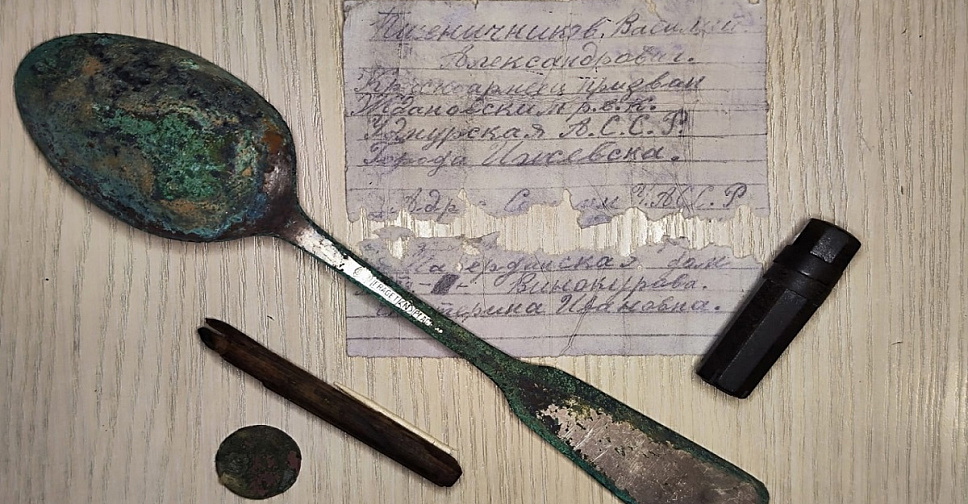 Пшеничников. Василий
Александрович.
Красноармеец призван
Ждановским р.в.к.
Удмурская А.С.С.Р.
Города Ижевска.
Адр У.АССР
дом
Винокурова.
Ивановна.